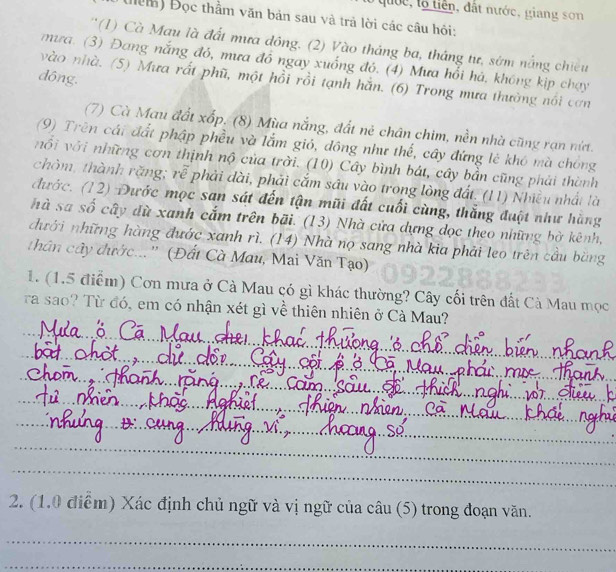 quốc, tổ tiên, đất nước, giang sơn
Đọc thầm văn bản sau và trả lời các câu hỏi:
"(1) Cà Mau là đất mưa dông. (2) Vào tháng ba, tháng tư, sớm nắng chiều
mưa. (3) Đang nắng đó, mưa đổ ngay xuống đó. (4) Mưa hối hả, không kịp chạy
vào nhà. (5) Mưa rất phũ, một hồi rồi tạnh hẳn. (6) Trong mưa thường nổi cơn
dông.
(7) Cà Mau đất xốp. (8) Mùa nắng, đất nẻ chân chim, nền nhà cũng rạn nứt.
(9) Trên cái đất phập phều và lắm gió, dông như thế, cây đứng lẻ khó mà chống
nổi với những cơn thịnh nộ của trời. (10) Cây bình bát, cây bần cũng phải thành
chòm, thành rặng; rễ phải dài, phải cắm sâu vào trong lòng đất. (11) Nhiều nhất là
đước. (12) Đước mọc san sát đến tận mũi đất cuối cùng, thẳng đuột như hàng
hà sa số cây dù xanh cắm trên bãi. (13) Nhà cửa dựng dọc theo những bờ kênh,
dưới những hàng đước xanh rì. (14) Nhà nọ sang nhà kia phải leo trên cầu bằng
thân cây đước..." (Đất Cà Mau, Mai Văn Tạo)
0922888233
1. (1.5 điểm) Cơn mưa ở Cà Mau có gì khác thường? Cây cối trên đất Cà Mau mọc
ra sao? Từ đó, em có nhận xét gì về thiên nhiên ở Cà Mau?
Mưa ở Cà Mau khác thường ở chỗ diễn biến nhanh
bất chợt, dữ dội. Cây cối ở Cà Mau phải mọc thành
chòm, thành rặng, rễ cắm sâu để thích nghi với điều k
tự nhiên khắc nghiệt, thiên nhiên Cà Mau khắc nghiệ
nhưng cũng hùng vĩ, hoang sơ
2. (1.0 điểm) Xác định chủ ngữ và vị ngữ của câu (5) trong đoạn văn.